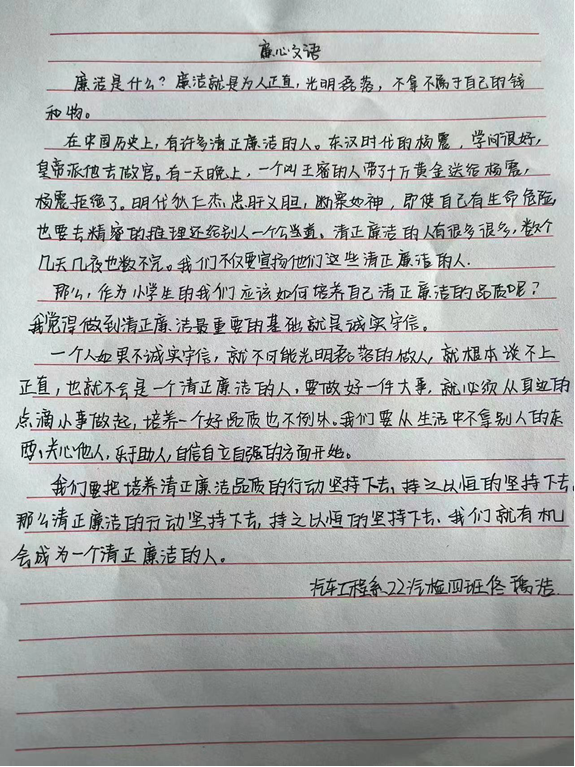 廉心文语
廉洁是什么？廉洁就是为人正直，光明磊落，不拿不属于自己的钱
和物。
在中国历史上，有许多清正廉洁的人。东汉时代的杨震，学问很好，
皇帝派他去做官。有一天晚上，一个叫王密的人带了十万黄金送给杨震，
杨震拒绝了。明代狄仁杰，忠肝义胆，断案如神，即使自己有生命危险
也要去精密的推理还给别人一个公道。清正廉洁的人有很多很多，数个
几天几夜也数不完。我们不仅要宣扬他们这些清正廉洁的人.
那么，作为小学生的我们应该如何培养自己清正廉洁的品质呢？
我觉得做到清正廉洁最重要的基础就是诚实守信。
一个人如果不诚实守信，就不可能光明磊落的做人，就根本谈不上
正直，也就不会是一个清正廉洁的人，要做好一件大事，就必须从身边的
点滴小事做起，培养一个好品质也不例外。我们要从生活中不拿别人的东
西，关心他人，乐于助人，自信自立自强的方面开始。
我们要把培养清正廉洁品质的行动坚持下去，持之以恒的坚持下去。
那么清正廉洁的行动坚持下去，持之以恒的坚持下去、我们就有机
会成为一个清正廉洁的人。
汽车工程系22汽检四班佟浩